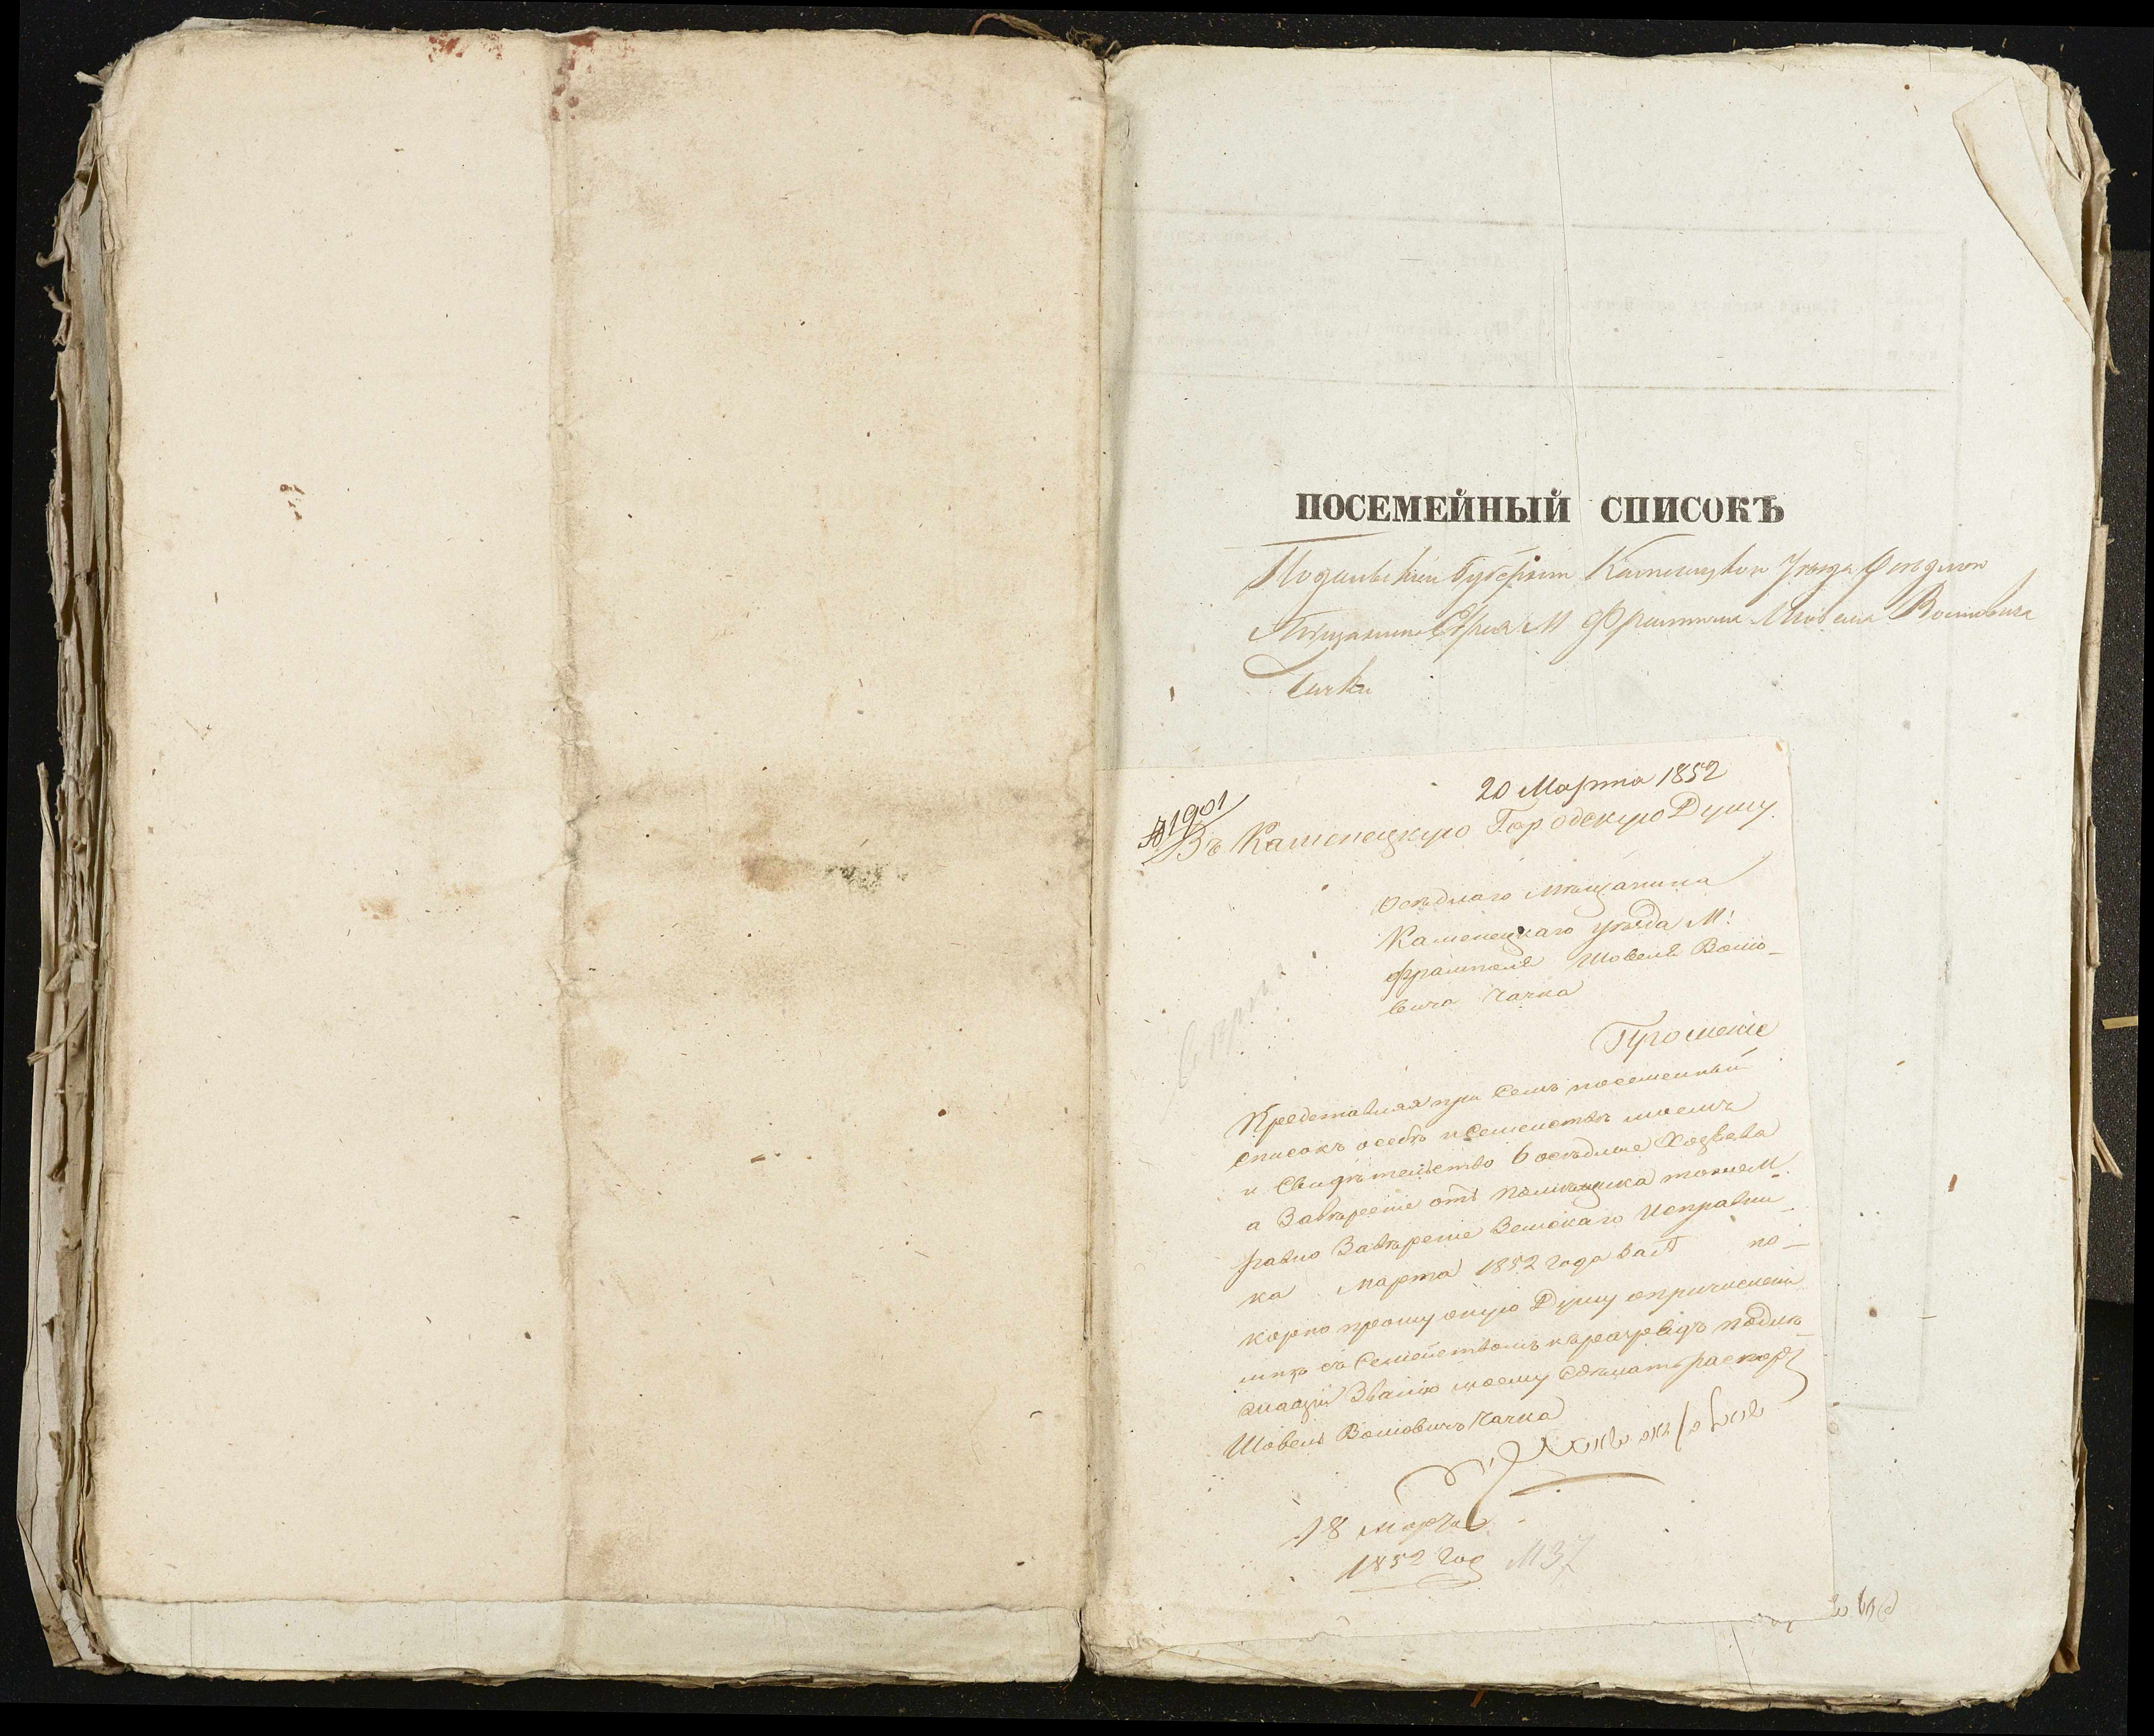 ПОСЕМЕЙНЫЙ СПИСОКЪ
Подольской Губернiи Каменецкого Уезда Оседлого
Мещанина Еврея М Фрамполя Шовеля Вольовича
Чачки
20 Марта 1852
№ 1901
Въ Каменецкую Городскую Думу
Оседлаго Мѣщанина
Каменецкаго уѣзда М:
Фрамполя Шовеля Вольо-
вича Чачка
Прошенiе
Представляя при семъ посемейный
списокъ о себѣ и семействѣ моемъ
и Свидѣтельство 6 осѣдлые Хозяева
а Завѣренiе отъ помѣщика
равно Завѣренiе Земскаго Исправни-
ка Марта 1852 года за № по-
корно прошу оную Думу о причисленiи
мнѣ съ Семействомъ къ разряду
Званiю моему Сдѣлать распоря
Шовель Вольовичъ Чачка
18 Марта
1852 Год
М 37